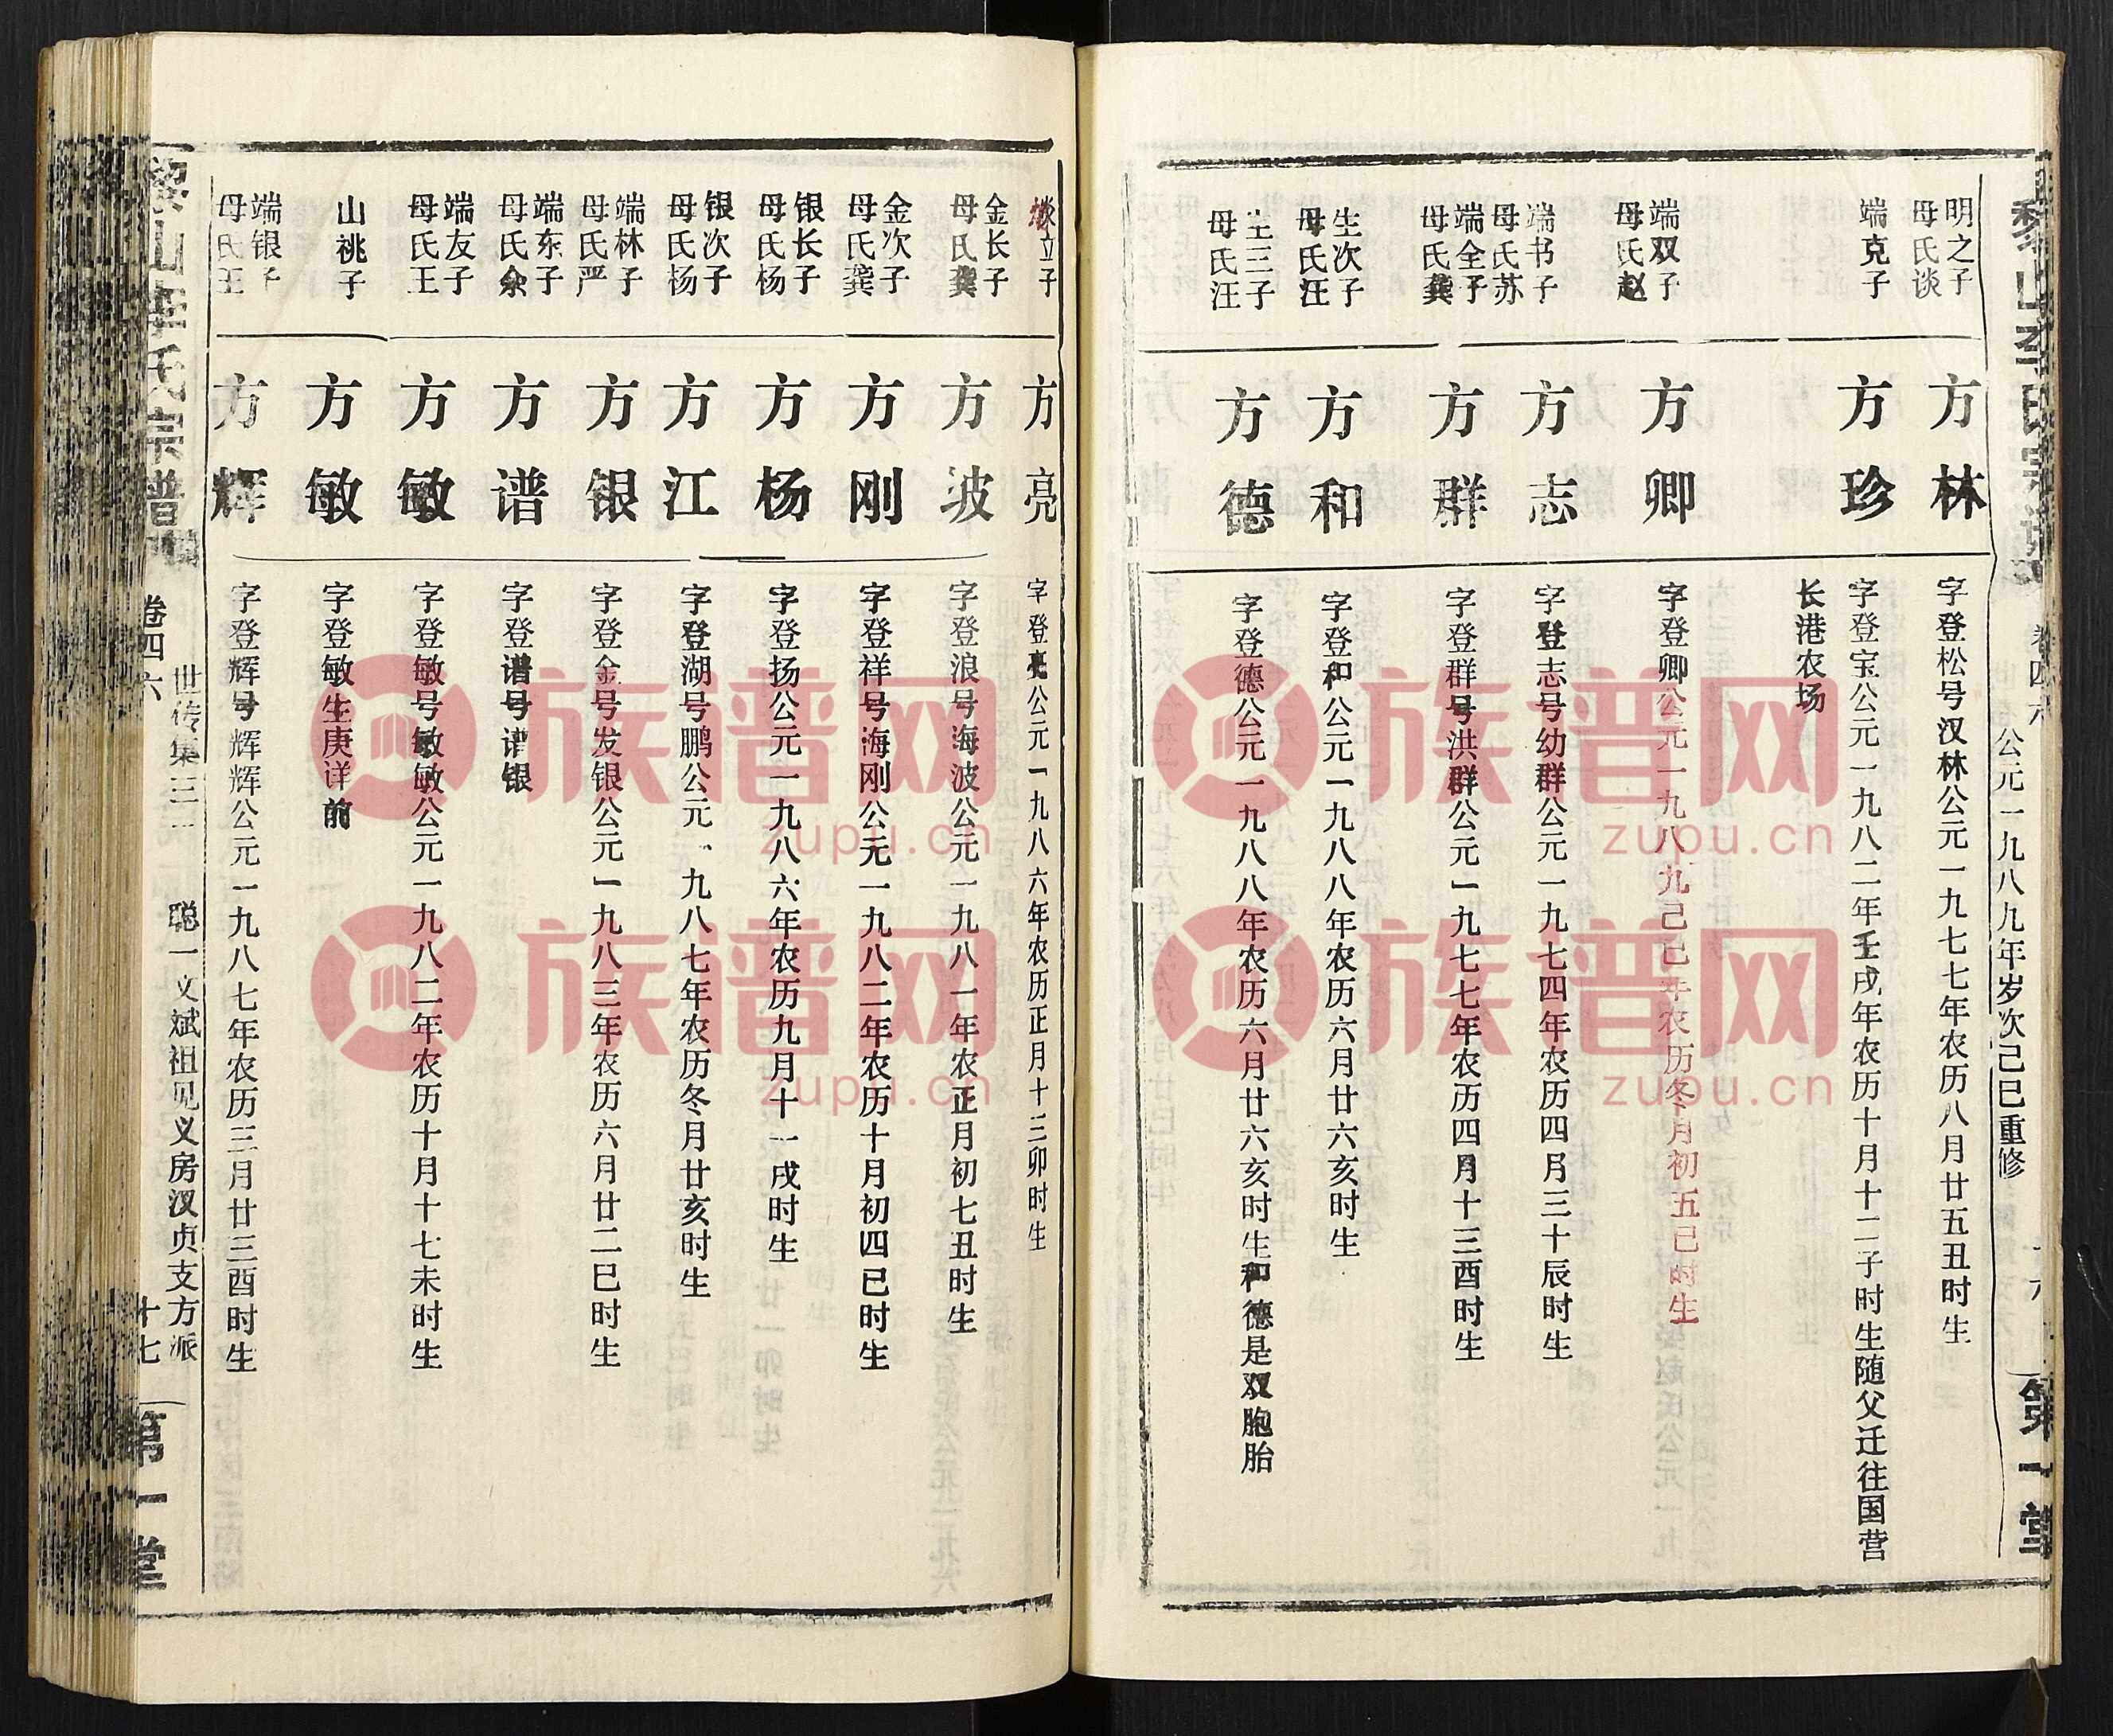 黎山李氏宗谱
卷四六
公元一九八九年岁次己巳重修
第一堂
明之子
母氏谈
方林
字登松号汉林公元一九七七年农历八月廿五丑时生
端克子
方珍
字登宝公元一九八二年壬戌年农历十月十二子时生随父迁往国营
长港农场
端双子
母氏赵
方卿
字登卿公元一九八九己巳年农历冬月初五巳时生
端书子
母氏苏
方志
字登志号幼群公元一九七四年农历四月三十辰时生
端全子
母氏龚
方群
字登群号洪群公元一九七七年农历四月十三酉时生
生次子
母氏汪
方和
字登和公元一九八八年农历六月廿六亥时生
生三子
母氏汪
方德
字登德公元一九八八年农历六月廿六亥时生和德是双胞胎
立子
方亮
字登亮公元一九八六年农历正月十三卯时生
金长子
母氏龚
方波
字登浪号海波公元一九八一年农正月初七丑时生
金次子
母氏龚
方刚
字登祥号海刚公元一九八二年农历十月初四巳时生
银长子
母氏杨
方杨
字登扬公元一九八六年农历九月十一戌时生
银次子
母氏杨
方江
字登湖号鹏公元一九八七年农历冬月廿亥时生
端林子
母氏严
方银
字登金号发银公元一九八三年农历六月廿二巳时生
端东子
母氏余
方谱
字登谱号谱银
端友子
母氏王
方敏
字登敏号敏敏公元一九八二年农历十月十七未时生
山桃子
方敏
字登敏生庚详前
端银子
母氏王
方辉
字登辉号辉辉公元一九八七年农历三月廿三酉时生
世传集三一 聪一文斌祖见义房汉贞支方派
黎山李氏宗谱
卷四六
十七
第一堂
族谱网
zupu.cn
族谱网
zupu.cn
族谱网
zupu.cn
族谱网
zupu.cn